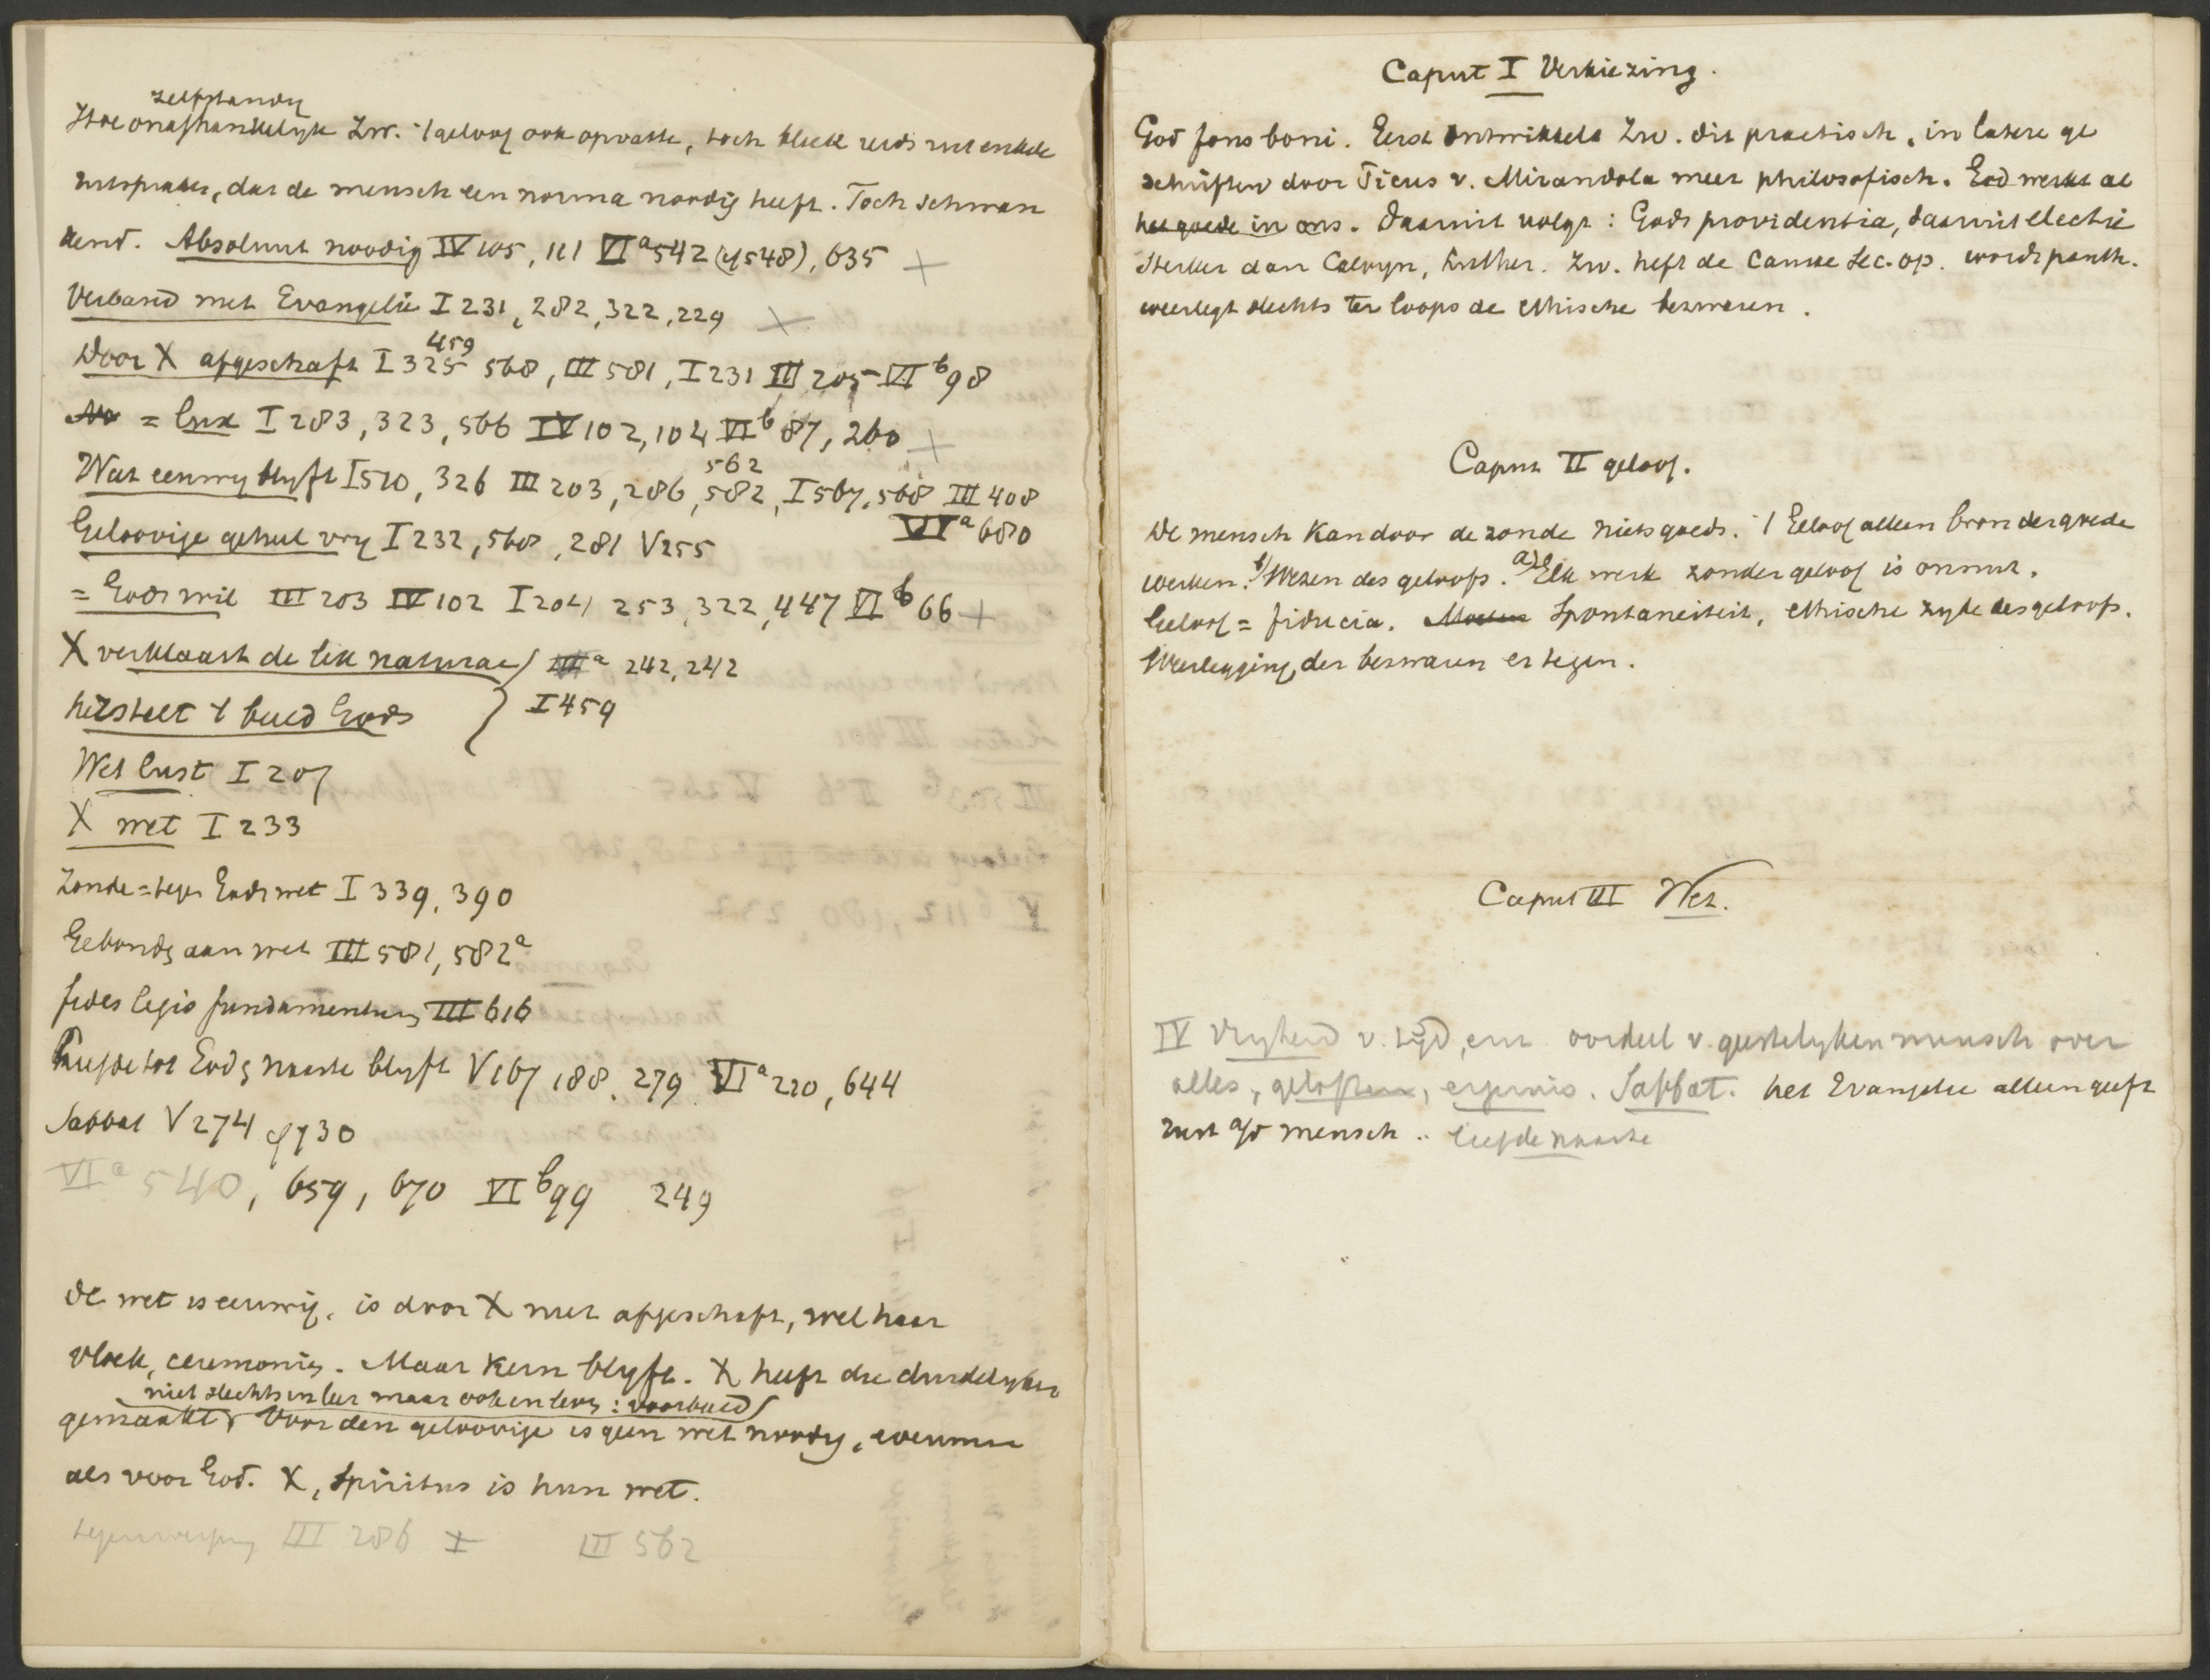 zelfstandig
Hoe onafhankelijk Zw. 't geloof ook opvatte, toch bleek reeds uit enkele
uitspraken, dat de mensch een norma noodig heeft. Toch schwan
kend. Absoluut noodig IV 105, 111 VIa 542 (cf 548), 635 +
Verband met Evangelie I 231, 282, 322, 229 +
459
Door X afgeschaft I 325 568, III 581, I 231 III 205 VI b 98
= lux I 283, 323, 566 IV 102, 104 VI b 87, 260 +
562
Wat eeuwig blyft I 510, 326 III 203, 286, 582, I 567, 568 III 408
Geloovige geheel vry I 232, 568, 281 V 255 VI a 680
= Gods wil III 203 IV 102 I 204 253, 322, 447 VI b 66 +
X verklaart de lex naturae } a 242, 242
herstelt 't beeld Gods } I 459
Wet lust I 207
X wet I 233
Zonde = tegen Gods wet I 339, 390
Gebonden aan wet III 581, 582a
fides legis fundamentum III 616
Liefde tot God en naaste blyft V 167 188, 279 VI a 220, 644
Sabbat V 274 cf 730
VI a 540, 659, 670 VI b 99 249
De wet is eeuwig, is door X niet afgeschaft, wel haar
vloek, ceremoniën. Maar kern blyft. X heeft die duidelyker
niet slechts in leer maar ook in leven: voorbeeld
gemaakt. Voor den geloovige is geen wet noodig, evenmin
als voor God. X, Spiritus is hun wet.
tegenwerping III 286 + III 562
Caput I Verkiezing.
God fons boni. Eerst ontwikkelt Zw. dit practisch, in latere ge
schriften door Picus v. Mirandola meer philosofisch. God werkt al
het goede in ons. Daaruit volgt: Gods providentia, daaruit electie
Sterker dan Calvyn, Luther. Zw. heft de causae sec. op. wordt panth.
weerlegt slechts ter loops de ethische bezwaren.
Caput II geloof.
De mensch kan door de zonde niets goeds. 't Geloof alleen bron der goede
werken. b) Wezen des geloofs. a) Elk werk zonder geloof is onnut.
Geloof = fiducia. Spontaneiteit, ethische zyde des geloofs.
Weerlegging der bezwaren er tegen.
Caput III Wet.
IV Vryheid v. tyd, enz. oordeel v. geestelyken mensch over
alles, geloften, ergernis. Sabbat. het Evangelie alleen geeft
rust a/d mensch .. liefde naaste